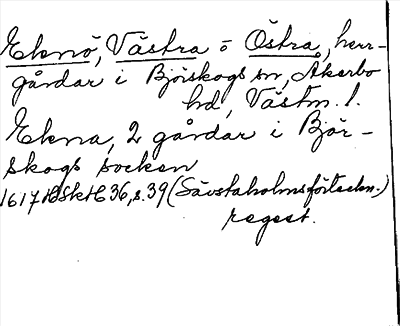 Eknö, Västra o Östra, herr-
gårdar i Björskogs sn, Åkerbo
hd, Västm. l.
Ekna, 2 gårdar i Björ-
skogs socken
1617 HSkH 36, s. 39 (Sävstaholmsförteckn.)
regest.